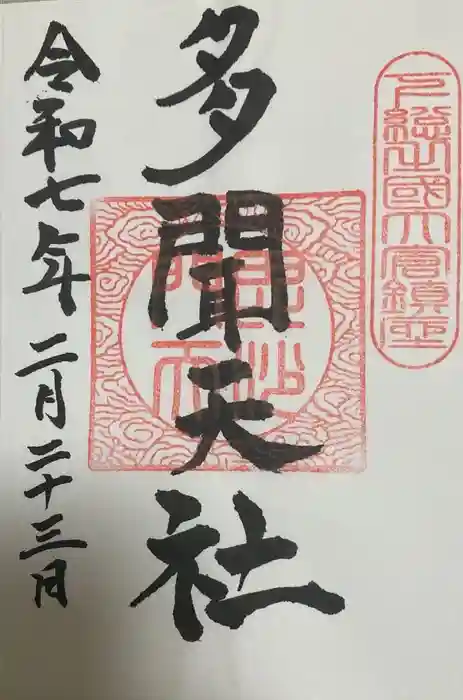 下総之國大宮鎮座
多聞天社
令和七年二月二十三日